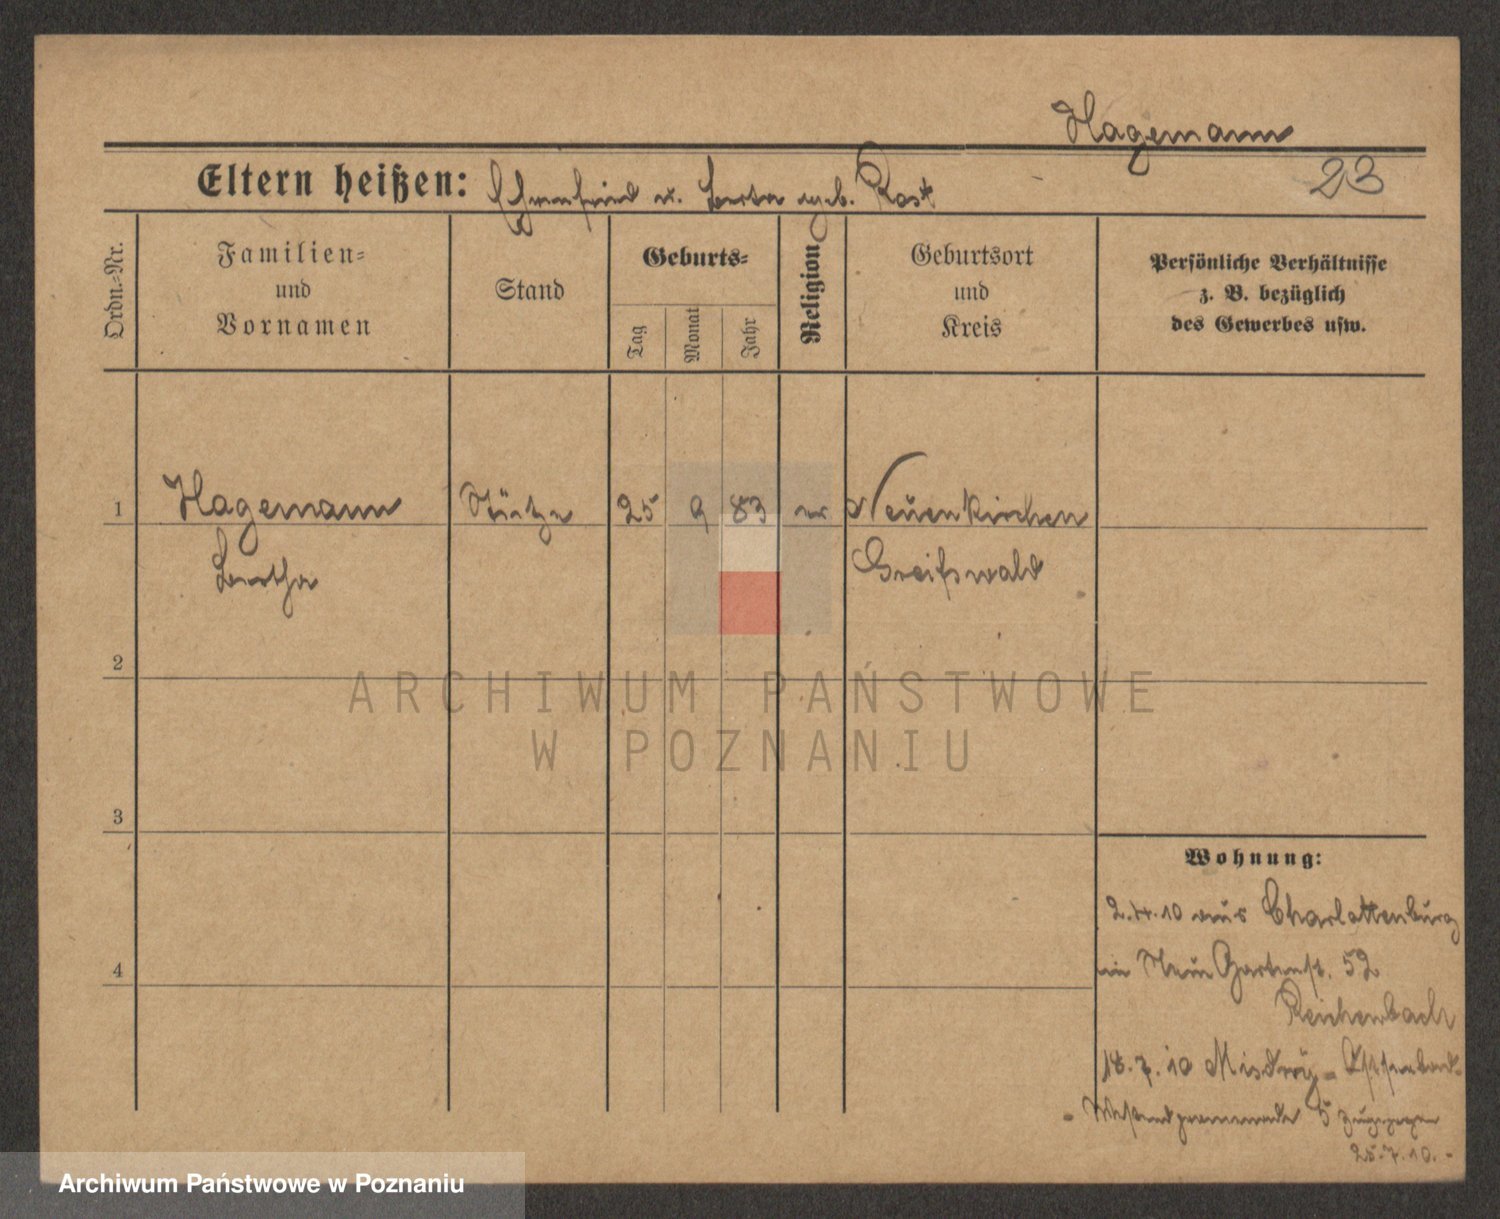 Hagemann
23
Eltern heißen: Ehrenfried u. Berta geb. Rost
Ordn.-Nr.
Familien-
und
Vornamen
Stand
Geburts-
Tag
Monat
Jahr
Religion
Geburtsort
und
Kreis
Persönliche Verhältnisse
z. B. bezüglich
des Gewerbes usw.
1 Hagemann Stütze 25 9 83 ev Neuenkirchen
Bertha Greifswald
2
ARCHIWUM PAŃSTWOWE
W POZNANIU
3
Wohnung:
2.4.10 aus Charlottenburg
4
Gartenst. 52
Reichenbach
18.7.10 Misdroy - Ostseebad
- 5 zugezogen
25.7.10. -
Archiwum Państwowe w Poznaniu